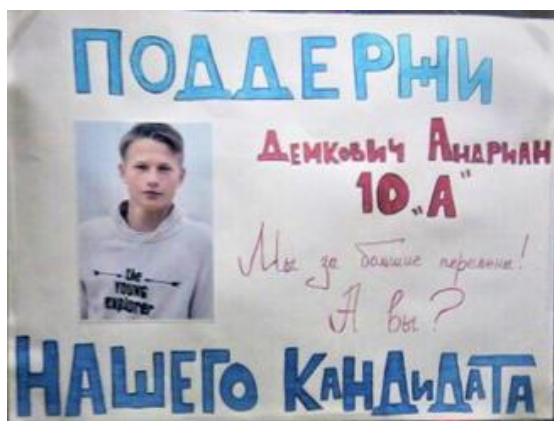 ПОДДЕРЖИ
ДЕМКОВИЧ АНДРИАН
10 „А"
Мы за большие перемены!
А вы?
the
YOUNG
explorer
НАШЕГО КАНДИДАТА